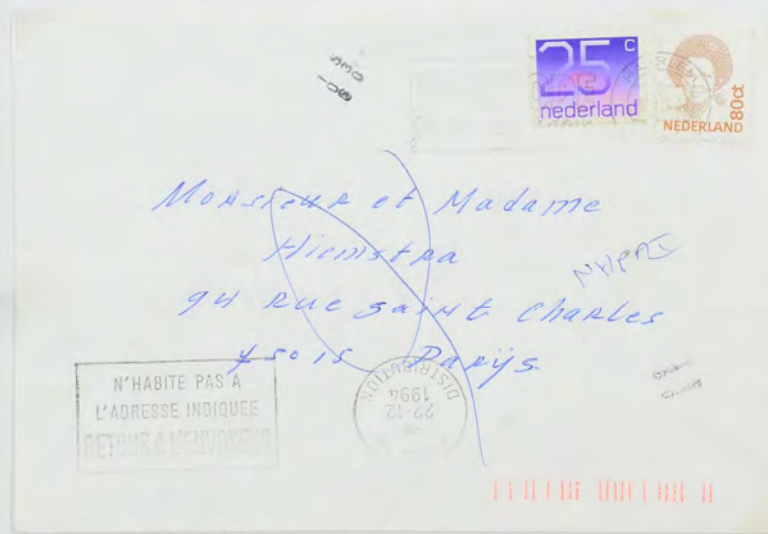 25 c
nederland
NEDERLAND 80ct
Monsieur et Madame
Hiemstra
94 Rue Saint Charles
75015 Parijs
NHPAI
N'HABITE PAS A
L'ADRESSE INDIQUEE
RETOUR A L'ENVOYEUR
DISTRIBUTION
22-12
1994